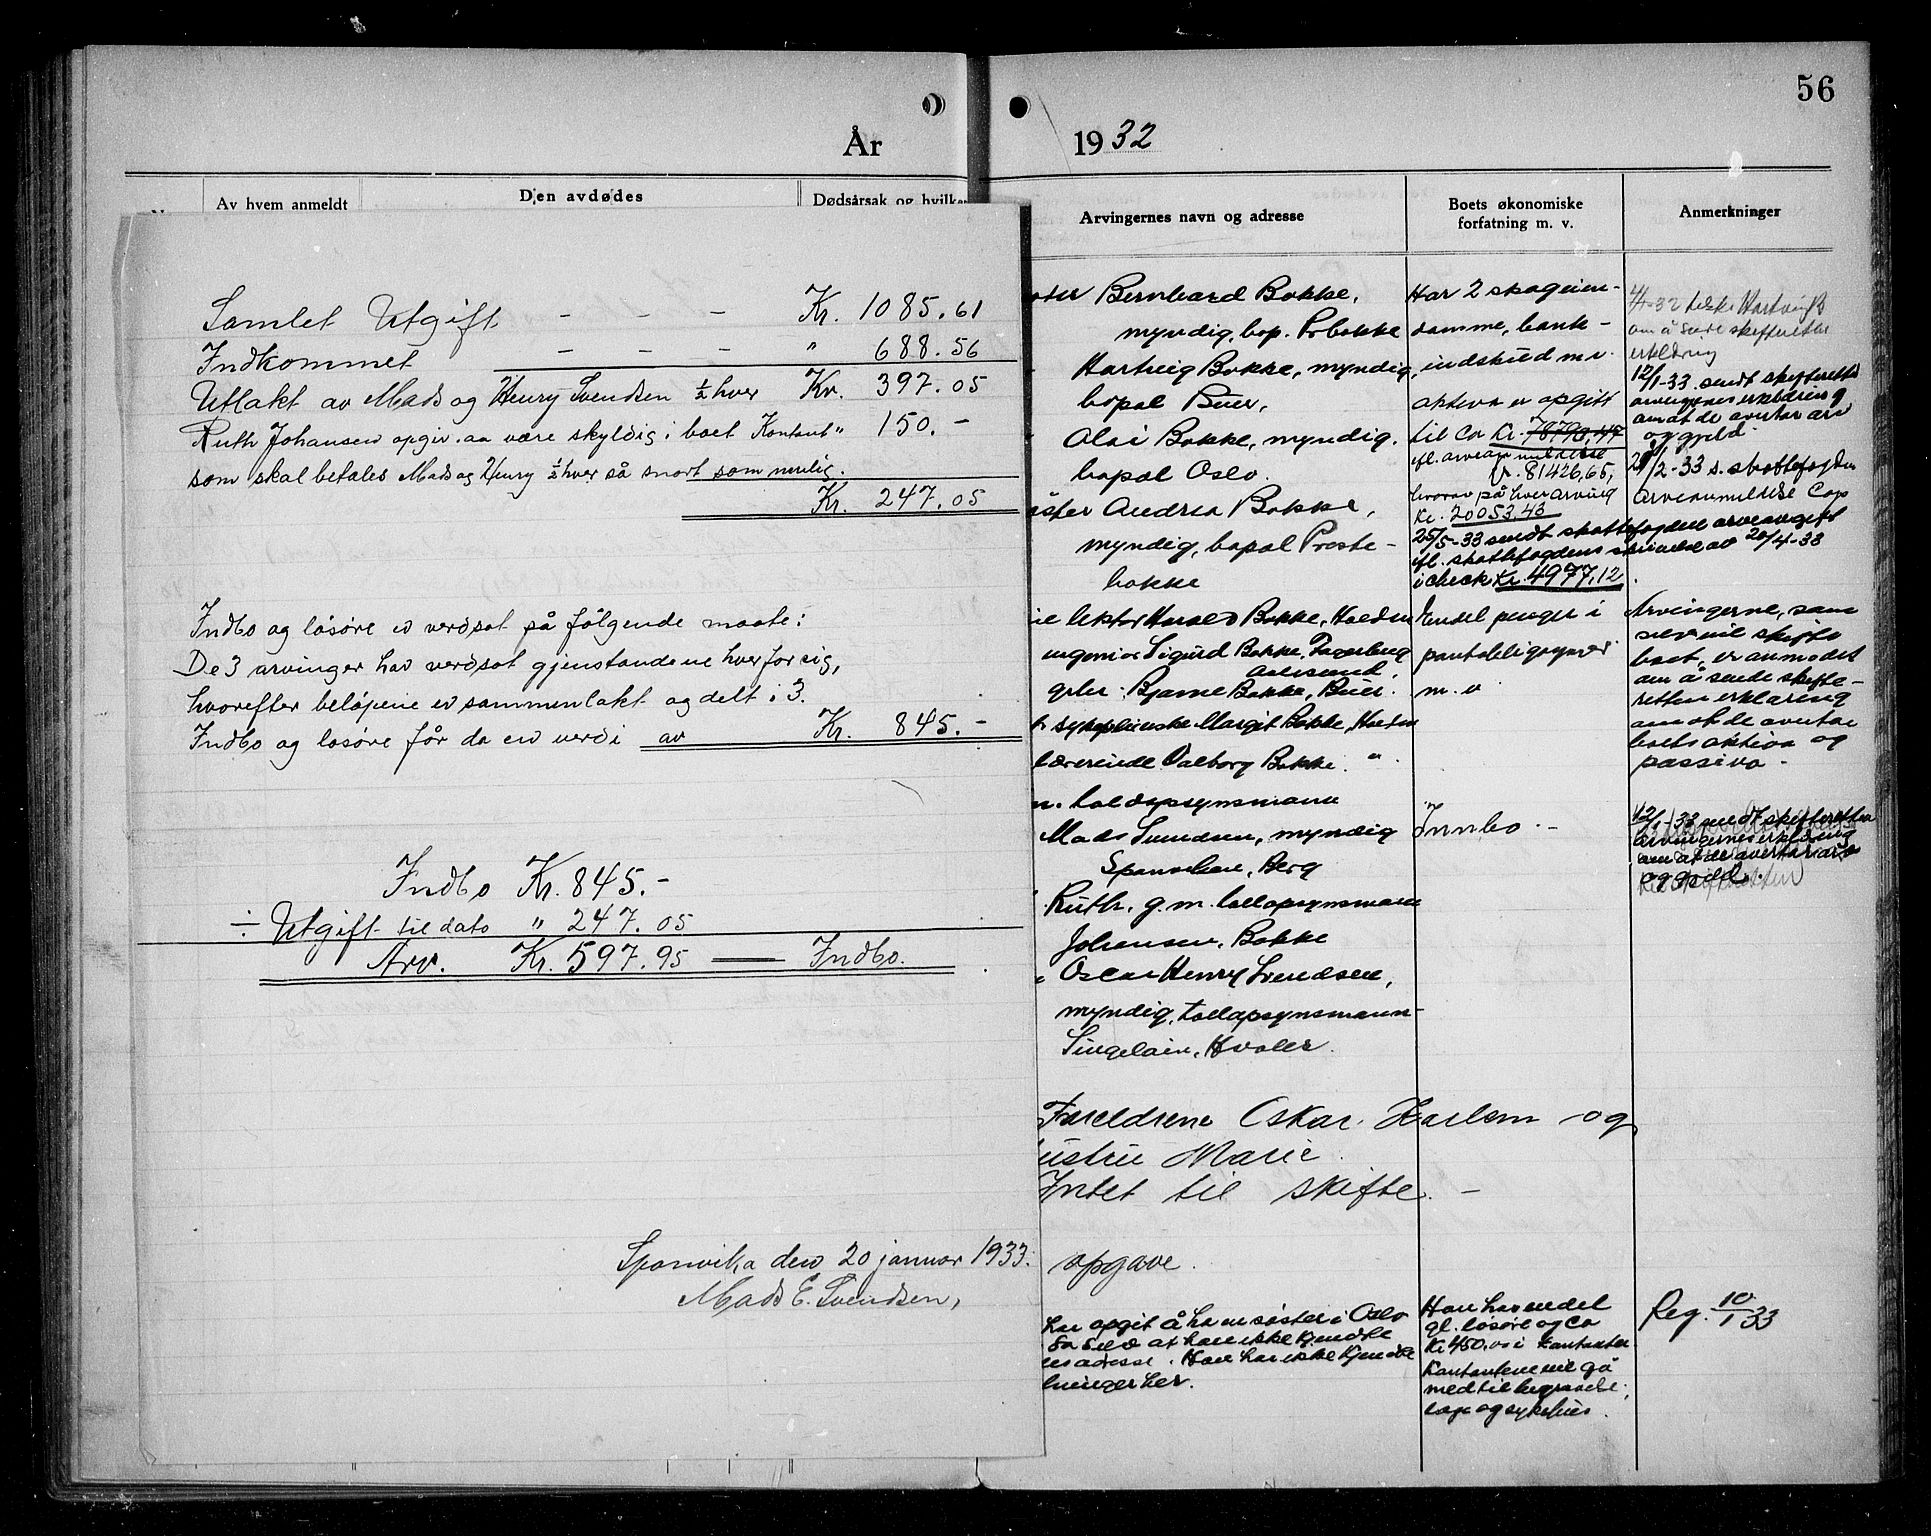 56
År
1932
Av hvem anmeldt
Den avdødes
Dødsårsak og hvilken
Samlet Utgift - - - Kr. 1085.61
Indkommet - - - " 688.56
Utlakt av Mads og Henry Svendsen ½ hver Kr. 397.05
Ruth Johansen opgir aa være skyldig i boet Kontant " 150.-
som skal betales Mads og Henry ½ hver så snart som mulig.
Kr. 247.05
Indbo og løsøre er verdsat på følgende maate:
De 3 arvinger har verdsat gjenstandene hver for sig,
hvorefter beløpene er sammenlakt og delt i 3.
Indbo og løsøre får da en verdi av Kr. 845.-
Indbo Kr. 845.-
÷ Utgift til dato " 247.05
Arv. Kr. 597.95 — Indbo.
Sponvika den 20 januar 1933.
Mads E. Svendsen,
Arvingernes navn og adresse
Bernhard Bokke,
myndig, bop. Prbakke
Hartvig Bokke, myndig,
bopal Buer,
Olai Bokke, myndig.
bopal Oslo.
Andrea Bokke,
myndig, bopal Preste-
bakke
lektor Harald Bokke, Halden
ingeniør Sigurd Bokke,
Bjarne Bokke, Buer.
sykepleierske Margit Bokke, Horten
lærerinde Valborg Bokke. "
toldopsynsmann
Mads Svendsen, myndig
Sponviken, Berg
Ruth, g.m. tollopsynsmann
Johansen, Bakke
Oscar Henry Svendsen,
myndig, tollopsynsmann
Singeløien, Hvaler.
Foreldrene Oskar Karlsen og
hustru Marie.
Intet til skifte. -
opgave.
har opgit å ha en søster i Oslo
at han ikke kjendte
adresse. Han har ikke kjendte
her.
Boets økonomiske
forfatning m. v.
Har 2 skogeien-
domme, bank-
indskud m.v.
aktiva er opgitt
til ca Kr. 78790,47
efl. arveanmeldelse
Kr. 81426,65,
hvorav på hver arving
Kr. 20053.43
25/5-33 sendt skattefogden arveavgift
efl. skattefogdens skrivelse av 20/4-33
i check Kr. 4977,12.
Endel penger i
pantobligasjoner
m.v
Innbo.-
Han har endel
gl. løsøre og ca
Kr 450,00 i kontanter
Kontantene vil gå
med til begravelse,
læge og sykehus.
Anmerkninger
om å sende skifteretten
erklæring
12/1-33. sendt skifteretten
arvingenes erklæring
om at de avertar arv
og gjeld.
2-33 s. skattefogden
arveanmeldelse
Arvingerne, som
selv vil skifte
boet, er anmodet
om å sende skifte-
retten erklæring
om at de avertar
boets aktiva og
passiva.-
12/1-33 sendt skifteretten
arvingernes erklæring
om at de avertar arv
og gjeld.
Reg. 10/1 33